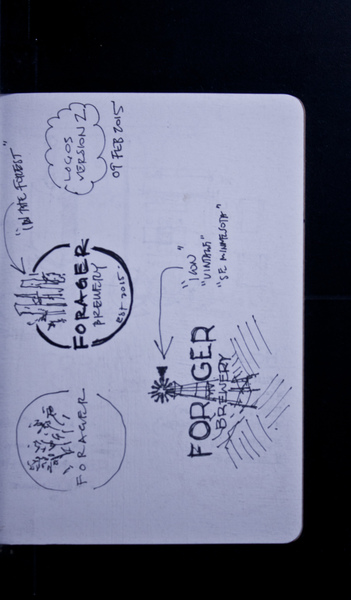 LOGOS
VERSION 2
09 FEB 2015
"IN THE FOREST"
FORAGER
BREWERY
EST 2015.
FORAGER
"ICON"
"VINTAGE"
"SE MINNESOTA"
FORAGER
BREWERY